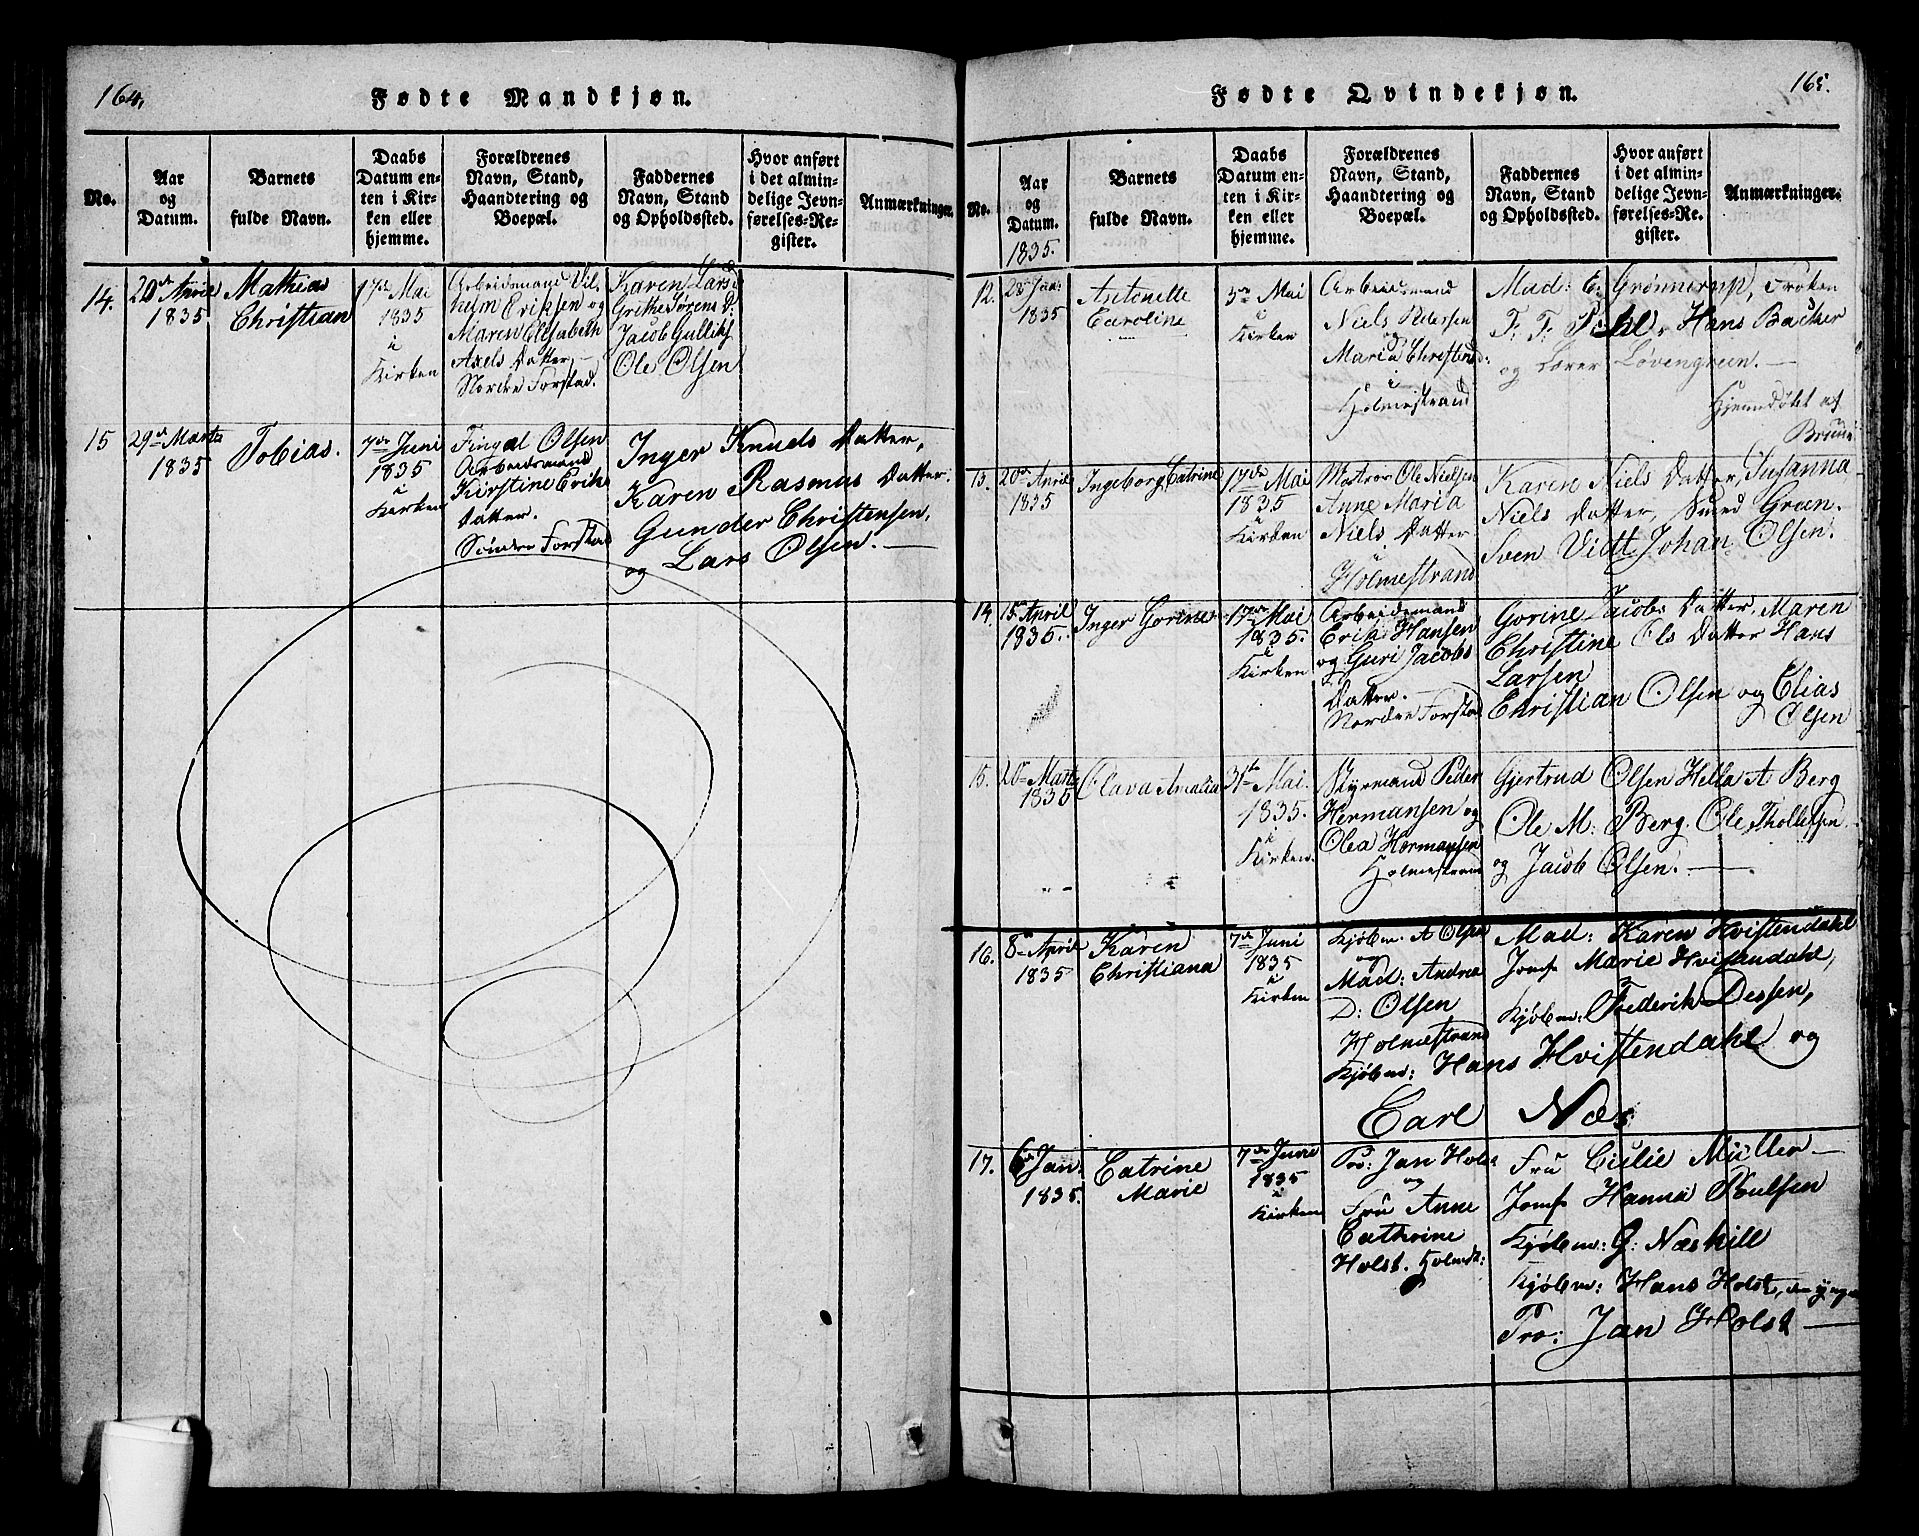 164.
Fødte Mandkjøn.
No.
Aar og Datum.
Barnets fulde Navn.
Daabs Datum enten i Kirken eller hjemme.
Forældrenes Navn, Stand, Haandtering og Boepæl.
Faddernes Navn, Stand og Opholdssted.
Hvor anført i det almindelige Jevnførelses-Register.
Anmærkninger.
14.
20de April
1835
Mathias
Christian
17de Mai
1835
i
Kirken
Arbeidsmand Vil-
helm Eriksen og
Maren Elisabeth
Axels Datter
Nordre Forstad.
Karen Lars D
Grethe Sørens D:
Jacob Gulliks
Ole Olsen
15
29de Marts
1835
Tobias.
7de Juni
1835
i
Kirken
Fingal Olsen
Arbeidsmand
Kirstine Eriks
Datter.
Søndre Forstad
Inger Knuds Datter,
Karen Rasmus Datter.
Gunder Christensen,
og Lars Olsen.
165.
Fødte Qvindekjøn.
No.
Aar og Datum.
1835.
Barnets fulde Navn.
Daabs Datum enten i Kirken eller hjemme.
Forældrenes Navn, Stand, Haandtering og Boepæl.
Faddernes Navn, Stand og Opholdssted.
Hvor anført i det almindelige Jevnførelses-Register.
Anmærkninger.
12.
28 Jan:
1835
Antonette
Caroline
3die Mai
i
Kirken
Arbeidsmand
Niels Pedersen
og
Maria Christens D:
i
Holmestrand
Mad: C. Grønnerup, Frøken
F. F. Pihl, Hans Backer
og Lærer Løvengreen.
Hjemmdøbt af
Bruun
13.
20de April
1835
Ingeborg Catrine
17de Mai
1835
i
Kirken
Matros Ole Nielsen
Anne Maria
Niels Datter
i
Holmestrand
Karen Niels Datter, Susanna
Niels Datter, Smed Green.
Sven Vidt Johan Olsen.
14.
15 April
1835.
Inger Gorine
17de Mai
1835.
i
Kirken
Arbeidsmand
Erik Hansen
og Guri Jacobs
Datter.
Nordre Forstad
Gorine Jacobs Datter, Maren
Christine Ols Datter Hans
Larsen
Christian Olsen og Elias
Olsen
15.
20de Marts
1835
Olava Amalia
31te Mai.
1835.
i
Kirken.
Styrmand Peder
Hermansen og
Olea Hermansen
Holmestrand
Gjertrud Olsen Helta A Berg
Ole M: Berg. Ole Thollefsen
og Jacob Olsen.
16.
8de April
1835
Karen
Christiana
7de Juni
1835
i
Kirken
Kjøbm: A Olsen
og
Mad: Andrea
D: Olsen
Holmestrand
Mad: Karen Hvistendahl
Jomf Marie Hvistendahl,
Kjøbm: Frederik Dessen,
Kjøbm: Hans Hvistendahl og
Carl Næs
17.
6de Jan:
1835.
Catrine
Marie
7de Juni
1835
i
Kirken
Pro: Jan Holst
og
Fru Anne
Cathrine
Holst. Holmst:
Fru Cislie Müller
Jomf Hanna Poulsen
Kjøbm: G: Næshill
Kjøbm: Hans Holst, den yngre
Pro: Jan Holst